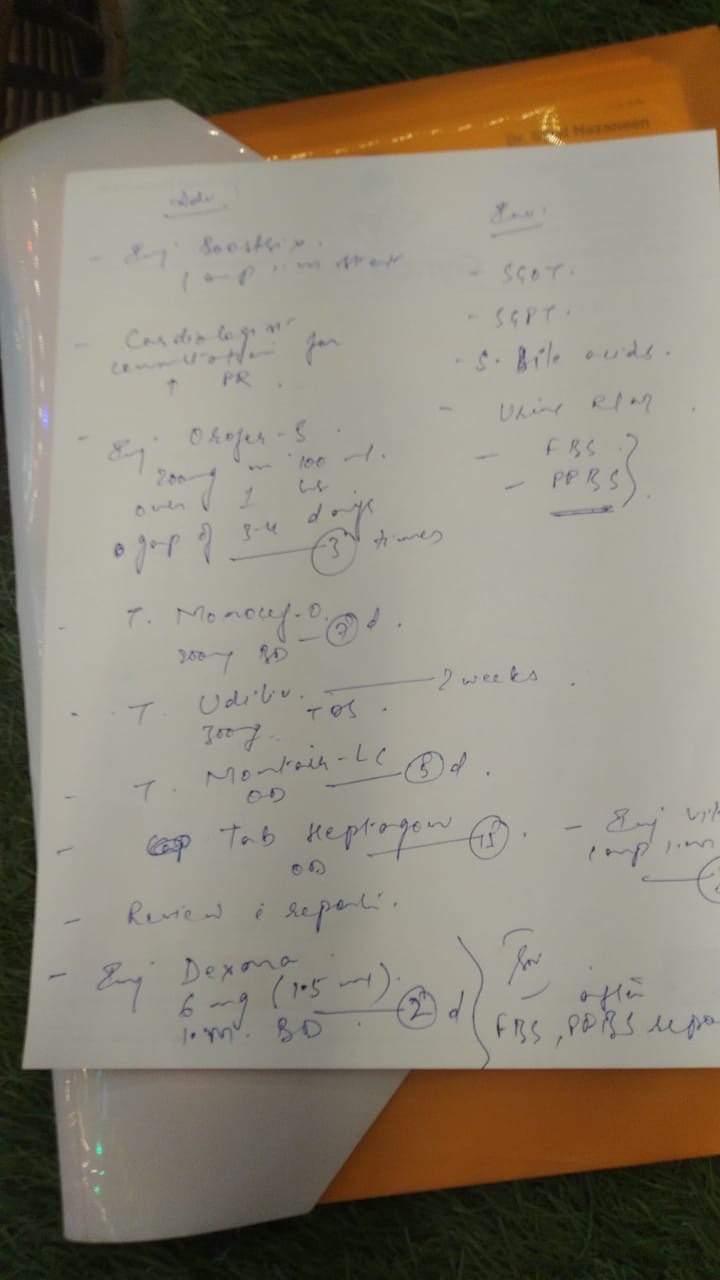 Adv
- Inj Boostrix.
1 amp i.m stat
- Cardiologist
consultation for
↑ PR.
- Inj Orofer-S.
200mg in 100 ml.
over 1 hr
gap of 3-4 days
3 times
- T. Monocef-O.
200mg BD - d.
- T. Udiliv. 2 weeks.
300mg. TDS.
- T. Montair-LC
OD 5 d.
- Tab Heptagon
OD 15.
- Review c reports.
- Inj Dexona
6 mg (1.5 ml).
i.m. BD. 2 d
after
FBS, PPBS
Inv.
- SGOT.
- SGPT.
- S. Bile acids.
- Urine R/M.
- FBS.
- PPBS.
- Inj
1 amp i.m
Dr. Nazaneen